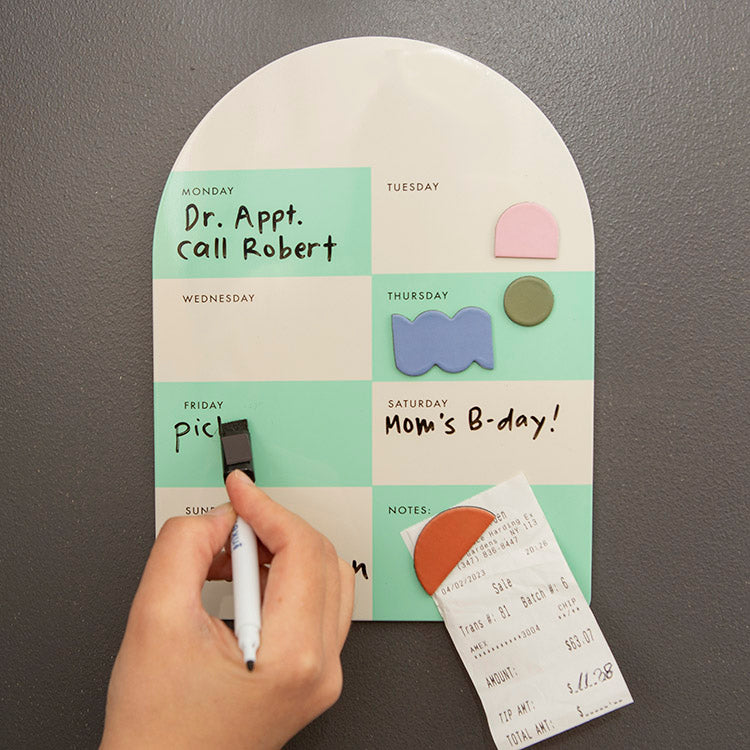 MONDAY
Dr. Appt.
Call Robert
TUESDAY
WEDNESDAY
THURSDAY
FRIDAY
pic
SATURDAY
Mom's B-day!
SUN
n
NOTES:
Harding Ex
Gardens NY-113
(347) 836-8447
04/02/2023 20:26
Sale
Trans #: 81 Batch #: 6
AMEX CHIP
***********3004 **/**
AMOUNT: $63.07
TIP AMT: $ 11.38
TOTAL AMT: $